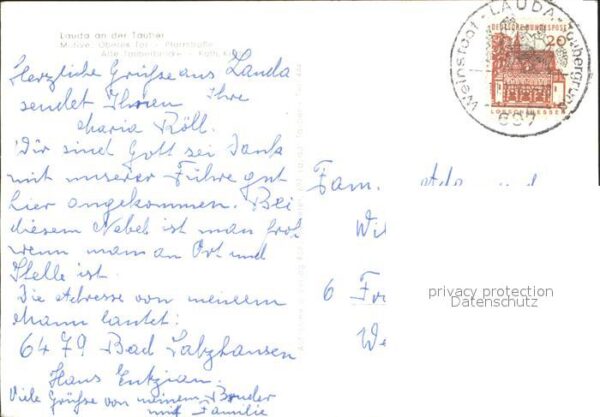 Lauda an der Tauber
Motive: Oberes Tor - Pfarrstraße
Alte Tauberbrücke - Kath.
Herzliche Grüße aus Lauda
sendet Ihnen Ihre
Maria Röll.
Wir sind Gott sei Dank
mit unserer Fuhre gut
hier angekommen. Bei
diesem Nebel ist man froh
wenn man an Ort und
Stelle ist.
Die Adresse von meinem
Mann lautet:
6479 Bad Salzhausen
Hans
Viele Grüße von meinem Bruder
mit Familie
Weinstadt · LAUDA · Taubergrund
697
DEUTSCHE BUNDESPOST
20
LORSCH/HESSEN
Fam.
6 Fr
We
privacy protection
Datenschutz